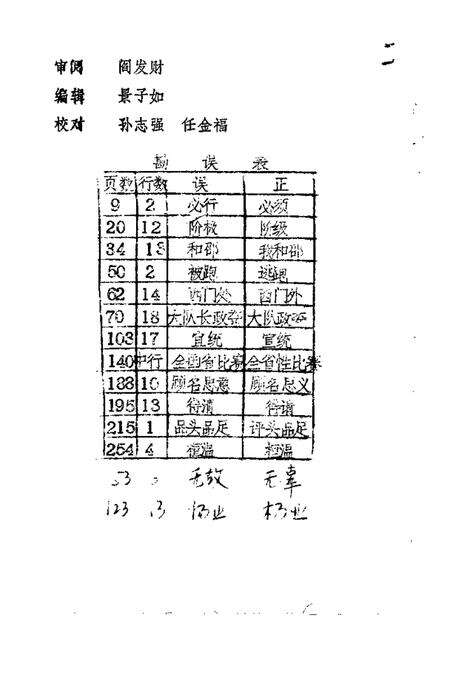 审阅 阎发财
编辑 景子如
校对 孙志强 任金福
勘 误 表
页数 行数 误 正
9 2 必行 必须
20 12 阶极 阶级
34 13 和邵 我和邵
50 2 被跑 逃跑
62 14 西门处 西门外
70 18 大队长政委 大队政委
103 17 宜统 宣统
140 中行 全的省比赛 全省性比赛
188 10 顾名思意 顾名思义
195 13
215 1 品头品足 评头品足
254 4
53 无 无辜
123 13